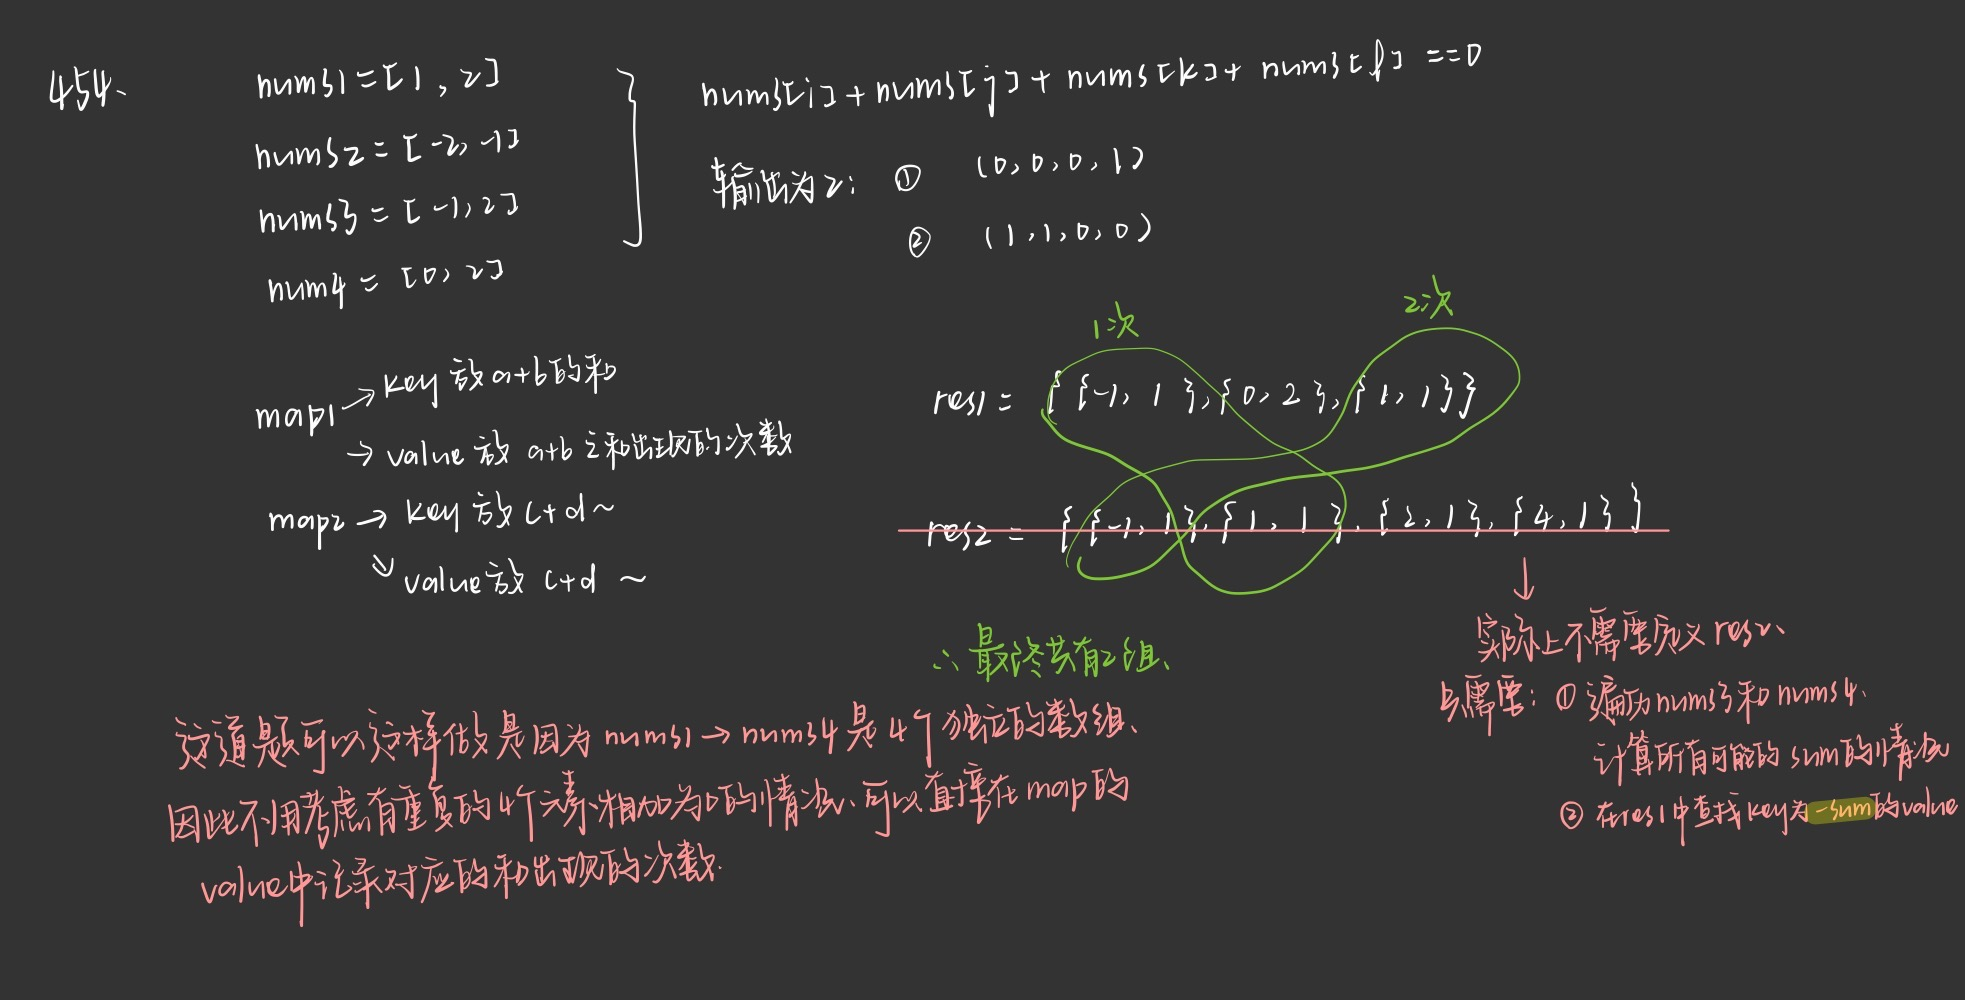 454、
nums1 = [1, 2]
nums2 = [-2, -1]
nums3 = [-1, 2]
num4 = [0, 2]
nums[i] + nums[j] + nums[k] + nums[l] == 0
输出为2: ① (0, 0, 0, 1)
② (1, 1, 0, 0)
map1 → key 放 a+b 的和
→ value 放 a+b 之和出现的次数
map2 → key 放 c+d ~
↘ value 放 c+d ~
1次
2次
res1 = {{-1, 1}, {0, 2}, {1, 1}}
res2 = {{-1, 1}, {1, 1}, {2, 1}, {4, 1}}
∴ 最终共有2组、
↓
实际上不需要定义 res2、
只需要: ① 遍历 nums3 和 nums4、
计算所有可能的 sum 的情况
② 在 res1 中查找 key 为 -sum 的 value
这道题可以这样做是因为 nums1 → nums4 是 4个独立的数组、
因此不用考虑有重复的4个元素相加为0的情况、可以直接在 map 的
value 中记录对应的和出现的次数.